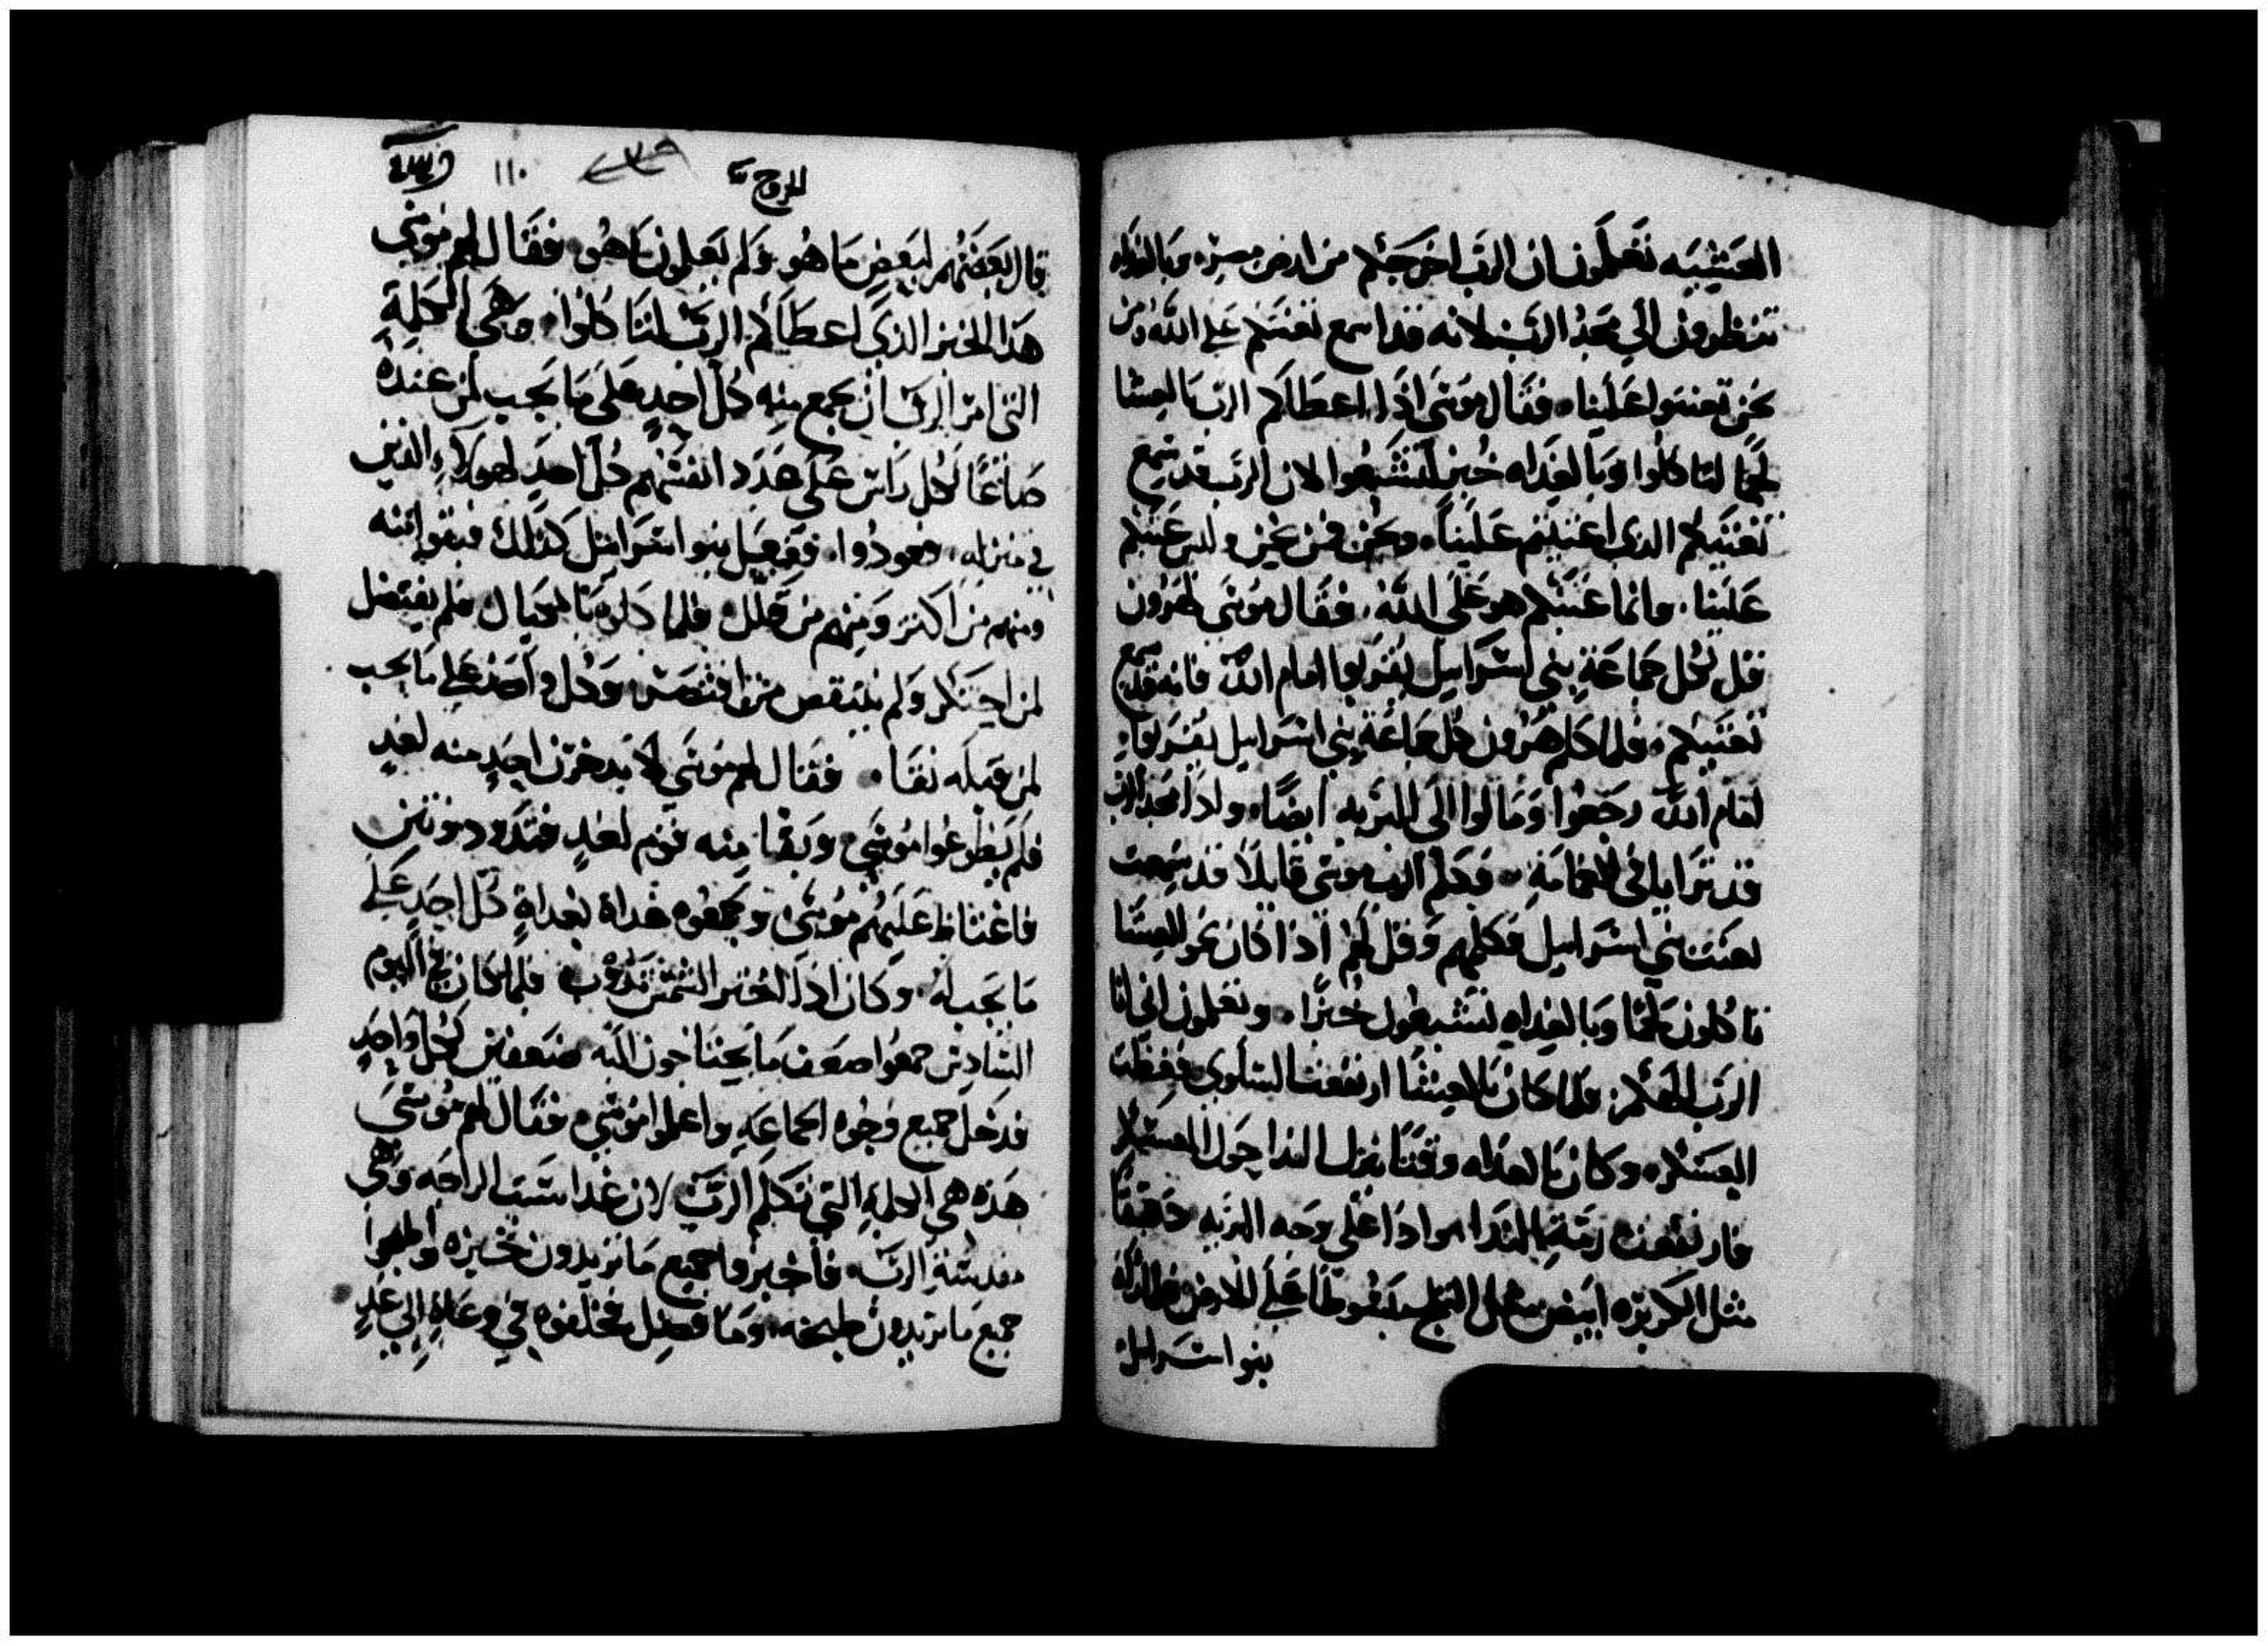 العشيه تعلمون ان الرب اخرجكم من ارض مصر، وبالغداه
تنظرون الي مجد الرب لانه قد اسمع تعنتكم علي الله ومن
نحن تعنتوا علينا. فقال موسى اذا اعطاكم الرب بالعشا
لحمًا لتاكلوا وبالغداه خبز لتشبعوا لان الرب قد سمع
تعنتكم الذي اعنتم علينا. ونحن فمن نحن وليس عنتكم
علينا. وانما عنتكم هو على الله. فقال موسى لهرون
قل لكل جماعة بني اسرايل يقتربوا امام الله فانه قد سمع
تعنتكم. فلما كلم هرون كل جماعة بني اسرايل يقتربوا
امام الله رجعوا وقالوا الى البريه ايضًا. واذا مجد الرب
قد ترايا في الغمامة. فكلم الرب موسى قايلاً قد سمعت
تعنت بني اسرايل فكلمهم وقل لهم اذا كان نحو العشا
تاكلون لحمًا وبالغداه تشبعون خبزًا. وتعلمون اني انا
الرب الهكم. فلما كان بالعشا ارتفعت السلوي فغطت
العسكر. وكان بالغداه وقتًا نزل الندا حول العسكر
فارتفعت الندا سوادا على وجه البريه دقيقًا
مثل الكزبره ابيض مثل الثلج علي الارض فلما راه
بنو اسرايل
الخروج
١١٠
قال بعضهم لبعض ما هو ولم يعلمون ما هو فقال لهم موسى
هذا الخبز الذي اعطاكم الرب لتاكلوا. وهي الكلمة
التي امر الرب ان يجمع منه كل احد على ما يجب لمن عنده
صاعًا لكل راس على عدد انفسهم كل احد لهولاء الذين
في منزله ففعل بنو اسرايل كذلك
ومنهم من اكثر ومنهم من قلل فلما كالوه بالمكيال فلم يفضل
لمن ولم ينتقص وكل واحد علي ما يجب
لمن قبله نقا. فقال لهم موسى لا يدخرن احد منه لغد
فلم يطوعوا موسى وبقا منه قوم لغد فتدود ونتن
فاغتاظ عليهم موسى وجمعوه غداة بغداة كل احد على
ما يجب له. وكان اذا الشمس يذوب فلما كان في اليوم
السادس جمعوا ضعف ما يحتاجون اليه ضعفين لكل واحد
فدخل جميع وجوه الجماعه واعلموا موسى، فقال لهم موسى
هذه هي الكلمة التي تكلم الرب لان غدا سبت الراحه وهي
مقدسة الرب. فاخبزوا جميع ما تريدون خبزه واطبخوا
جميع ما تريدون طبخه. وما فضل فخلفوه في وعاء الي غد